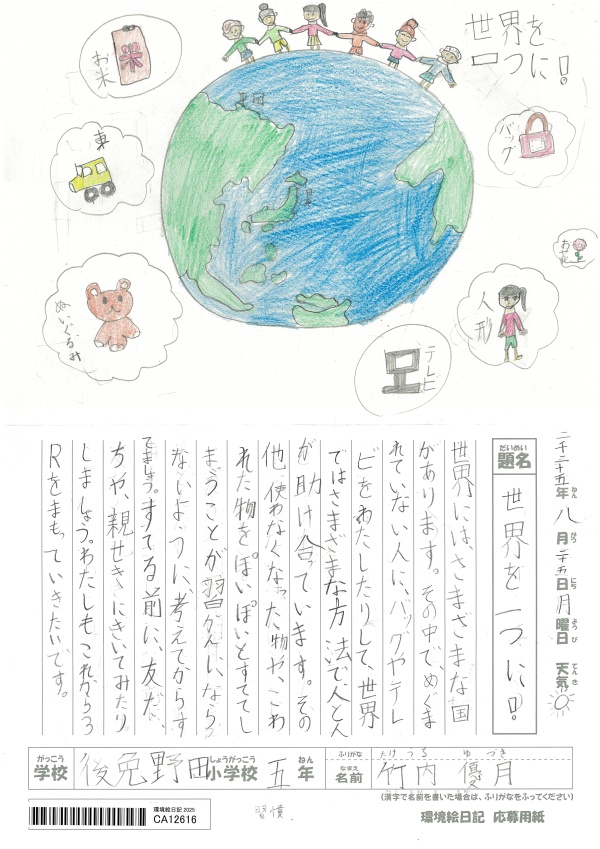 世界を
一つに!
お米
車
ぬいぐるみ
バッグ
お花
人形
テレビ
二千二十五年 八月 二十五日 月曜日 天気
ねん がつ にち ようび てんき
だいめい
題名 世界を一つに!
世界には、さまざまな国
があります。その中で、めぐま
れていない人に、バッグやテレ
ビをわたしたりして、世界
ではさまざまな方法で人と人
が助け合っています。その
他、使わなくなった物や、こわ
れた物をぽいぽいとすててし
まうことが習かんにならな
ないように、考えてからす
てましょう。すてる前に、友だ
ちや、親せきにきいてみたり
しましょう。わたしもこれから3
Rをまもっていきたいです。
がっこう しょうがっこう ねん
学校 後免野田小学校 五年
ふりがな たけうち ゆづき
なまえ
名前 竹内 優月
(漢字で名前を書いた場合は、ふりがなをふってください)
環境絵日記 2025
CA12616
習慣、
環境絵日記 応募用紙